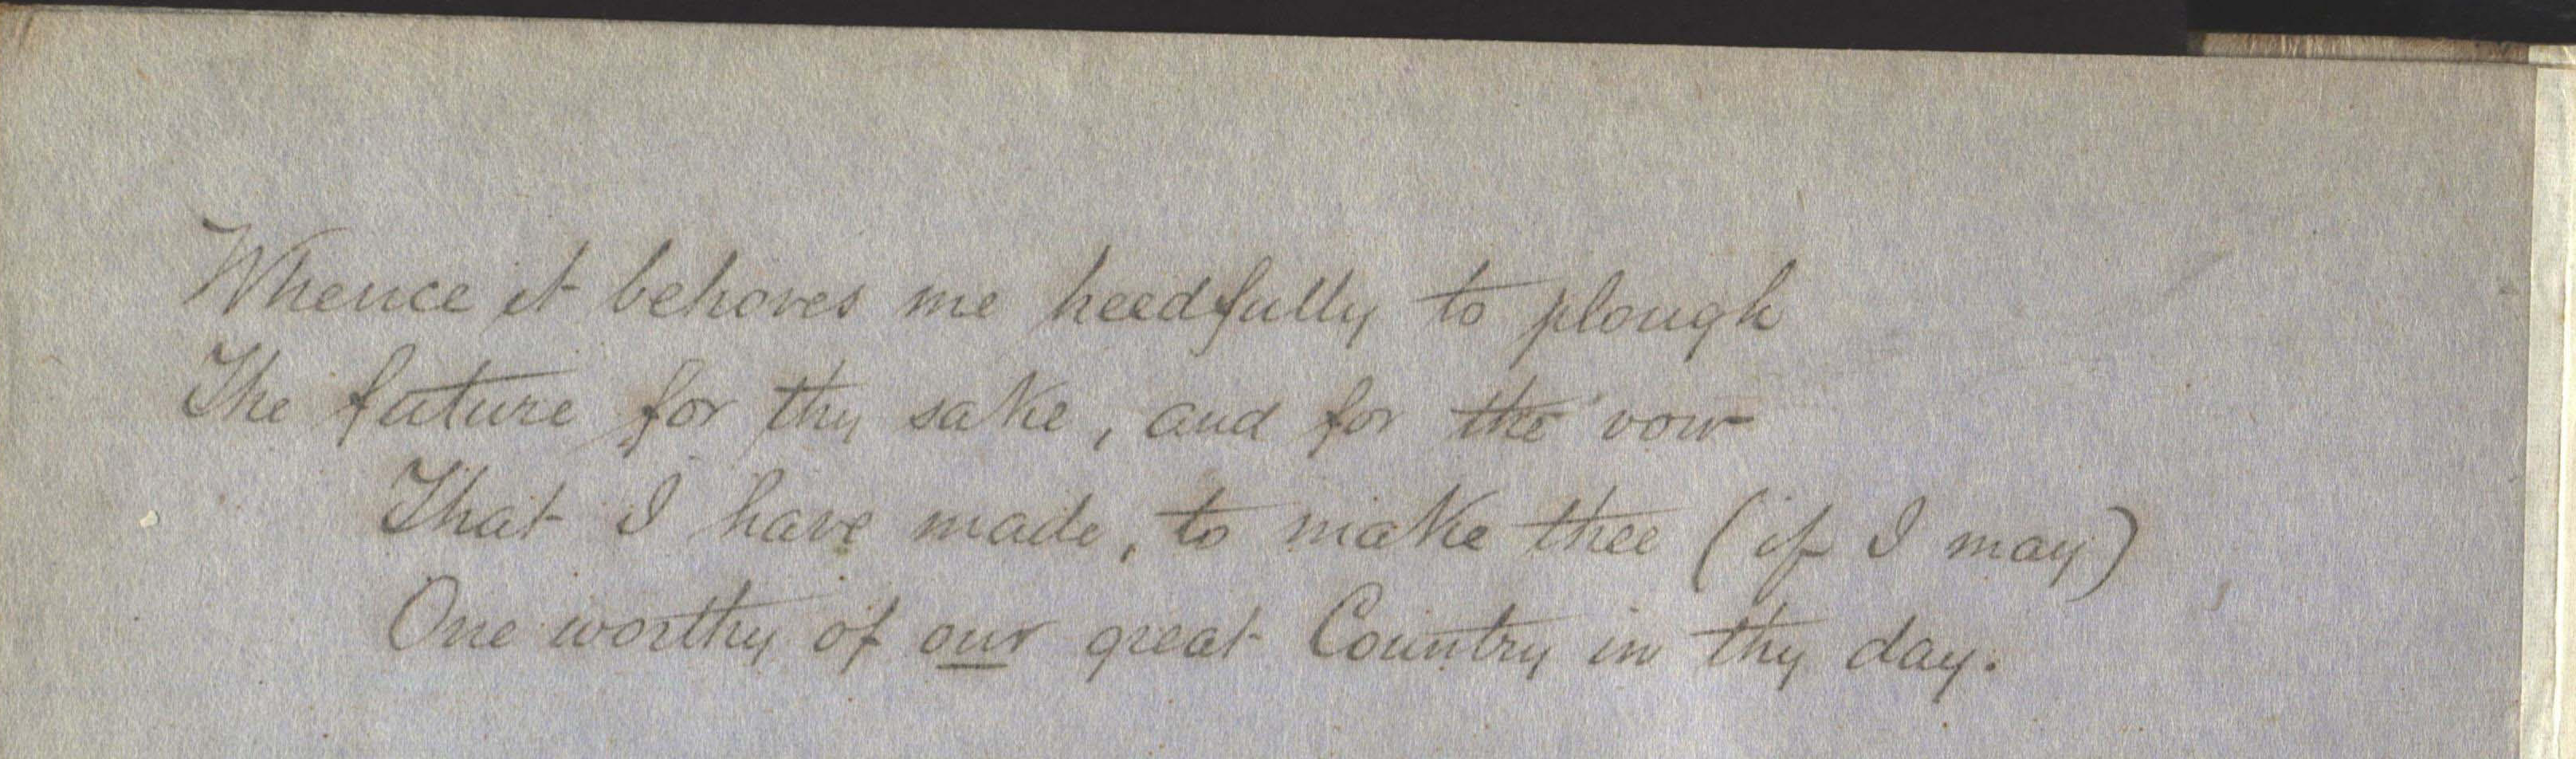 Whence it behoves me heedfully to plough
The future for thy sake, and for the vow
That I have made, to make thee (if I may)
One worthy of our great Country in thy day.